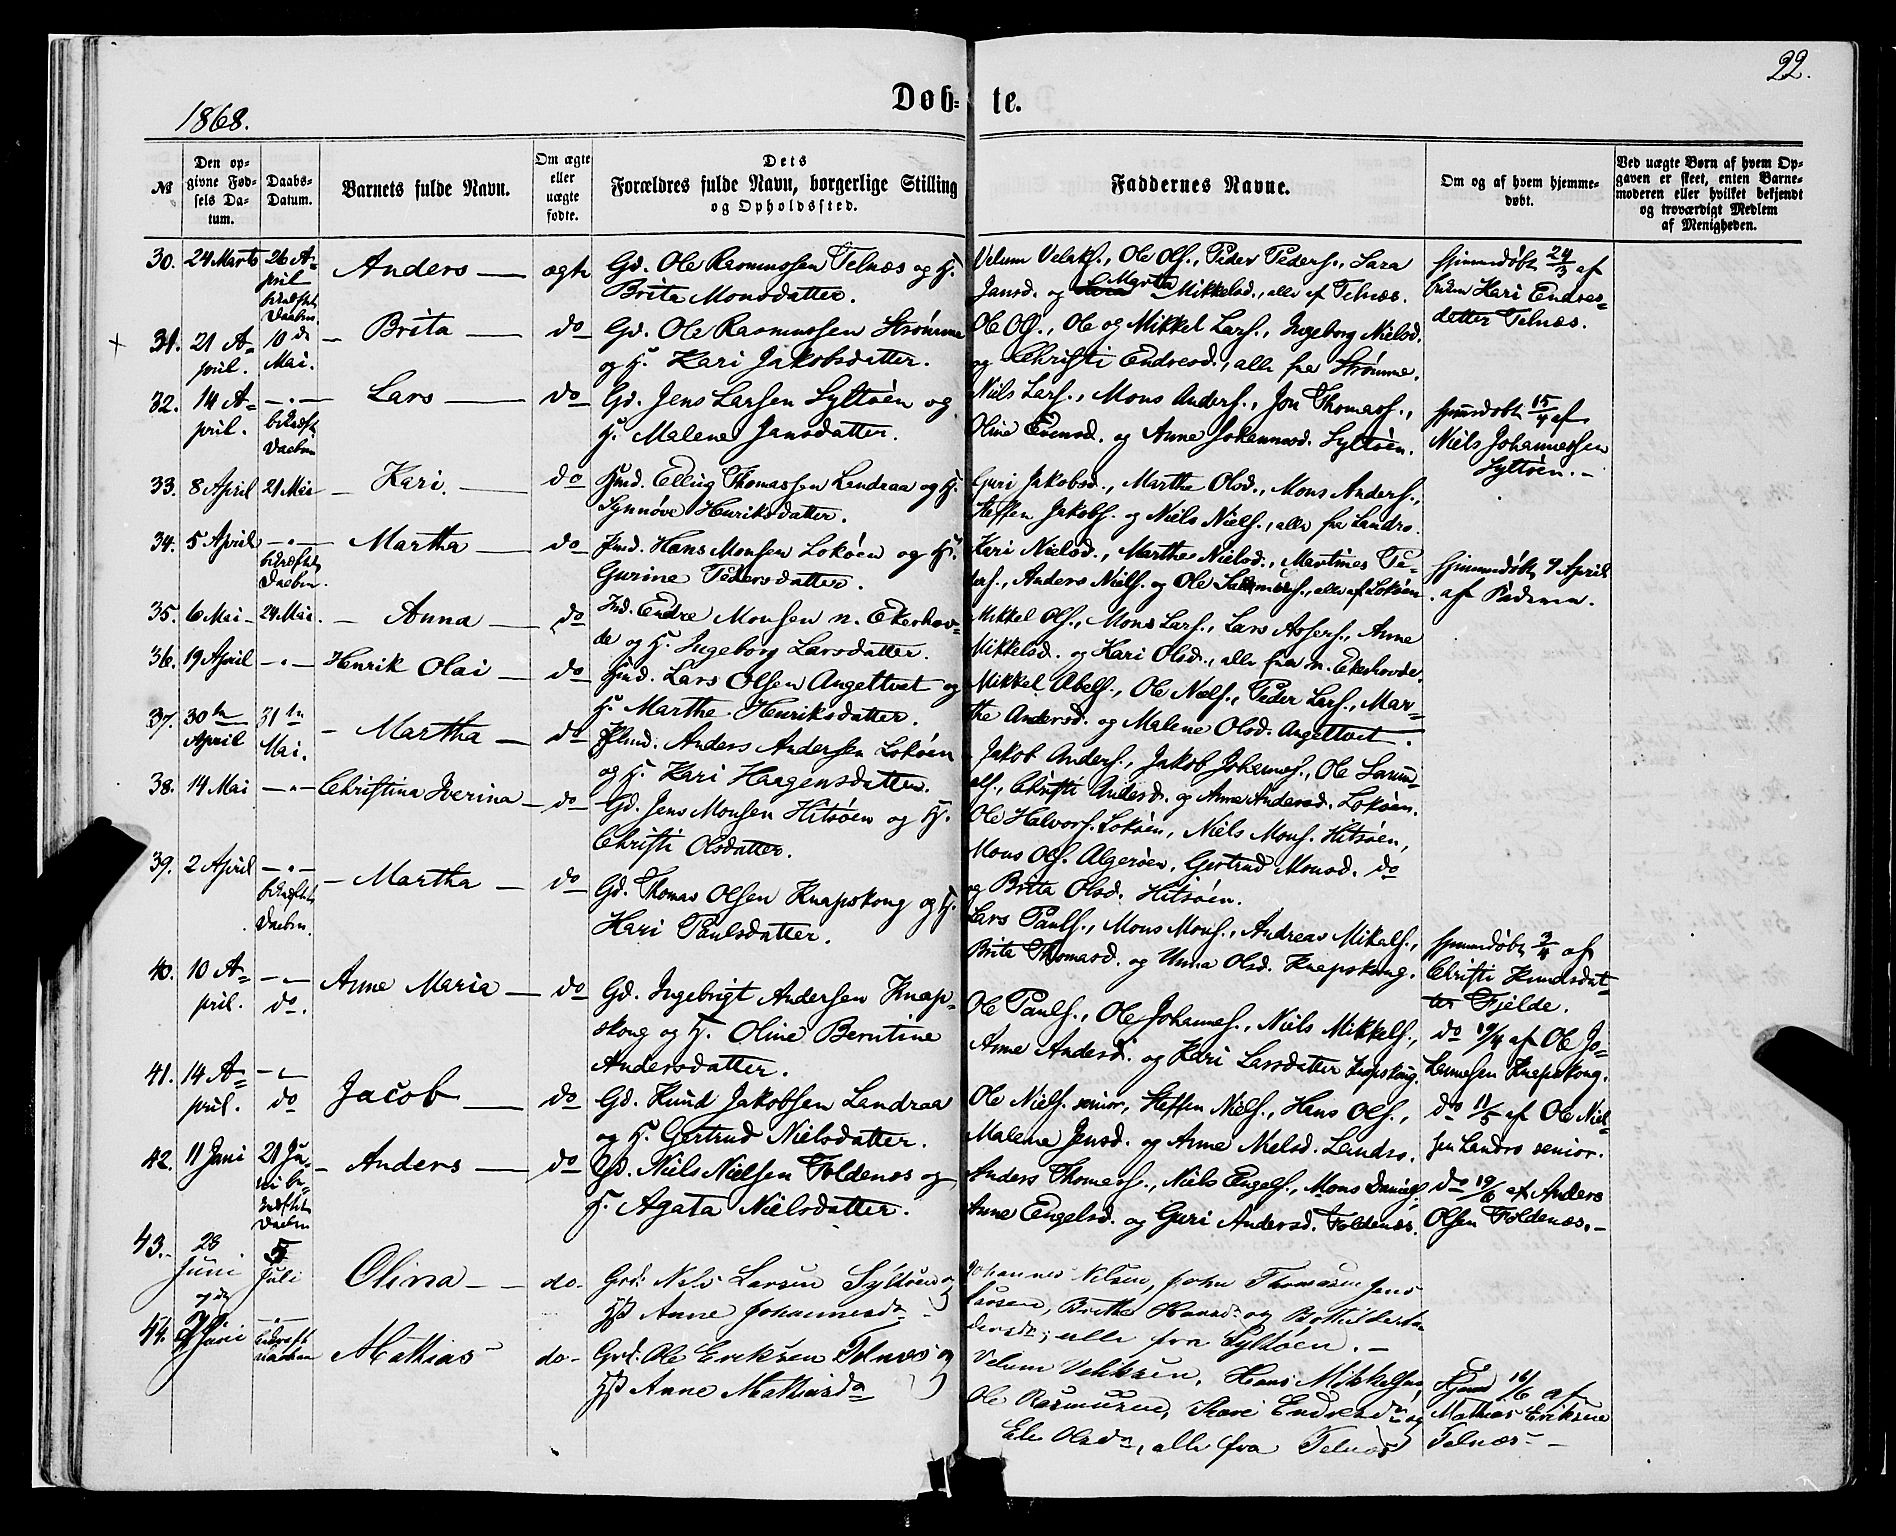 22.
Døb- te.
1868.
№
Den opgivne Fødsels Datum.
Daabs-Datum.
Barnets fulde Navn.
Om ægte eller uægte fødte.
Dets Forældres fulde Navn, borgerlige Stilling og Opholdssted.
Faddernes Navne.
Om og af hvem hjemmedøbt.
Ved uægte Børn af hvem Opgaven er skeet, enten Barnemoderen eller hvilket bekjendt og troværdigt Medlem af Menigheden.
30. 24 Marts 26 April bekræftet Daaben Anders ægte
Gd. Ole Rasmussen Telnæs og H.
Brita Monsdatter.
Ole Ols., Peder Peders., Sara
Jansd. og Martha Mikkelsd., alle af Telnæs.
hjemmedøbt 24/3 af
Kari Endresdatter Telnæs.
31. 21 April. 10 de Mai. Brita do
Gd. Ole Rasmussen Strømme
og H. Kari Jakobsdatter.
Ole Ols., Ole og Mikkel Lars., Ingeborg Nielsd.
og Christi Endresd., alle fra Strømme.
32. 14 April. -"- bekræft. Daaben Lars do
Gd. Jens Larsen Syltøen og
H. Malene Jansdatter.
Niels Lars., Mons Anders., Jon Thomass.,
Oline Evensd. og Anne Johannesd. Syltøen.
hjemmedøbt 15/4 af
Niels Johannessen
Syltøen.-
33. 8 April 21 Mai Kari. do
Hmd. Elling Thomassen Landraa og H.
Synnøve Henriksdatter.
Guri Jakobsd., Marthe Olsd., Mons Anders.,
Steffen Jakobs. og Niels Niels., alle fra Landro.
34. 5 April -"- bekræftet Daaben Martha do
Hans Monsen Lokøen og H.
Gurine Pedersdatter.
Kari Nielsd., Marthe Nielsd., Martines Peders., Anders Niels. og Ole, alle af Lokøen
hjemmedøbt 7 April
af Faderen.
35. 6 Mai 24 Mai. Anna do
Endre Monsen n. Ekerhovde og H. Ingeborg Larsdatter.
Mikkel Ols., Mons Lars., Lars Assers., Anne
Mikkelsd. og Kari Olsd., alle fra n. Ekerhovde.
36. 19 April -"- Henrik Olai do
Hmd. Lars Olsen Angeltvet og
H. Marthe Henriksdatter.
Mikkel Abels., Ole Niels., Peder Lars., Marthe Andersd. og Malene Olsd. Angeltvet.
37. 30te April 31te Mai. Martha do
Anders Andersen Lokøen
og H. Kari Haagensdatter.
Jakob Anders., Jakob Johannes., Ole, Christi Andersd. og Anne Andersd. Lokøen.
38. 14 Mai -"- Christina Iverina do
Gd. Jens Monsen Hitsøen og H.
Christi Olsdatter.
Ole Halvors. Lokøen, Niels Mons. Hitsøen,
Mons Ols. Algerøen, Gertrud Monsd. do
og Brita Olsd. Hitsøen.
39. 2 April -"- bekræftet Daaben. Martha do
Gd. Thomas Olsen Knapskong og H.
Kari Paulsdatter.
Lars Pauls., Mons Mons., Andreas Mikals.,
Brita Thomasd. og Anna Olsd. Knapskong.
hjemmedøbt 3/4 af
Christi Knudsdatter Fjelde.
40. 10 April. -"- do. Anne Maria do
Gd. Ingebrigt Andersen Knapskong og H. Oline Berntine
Andersdatter.
Ole Pauls., Ole Johannes., Niels Mikkels.,
Anne Andersd. og Kari Larsdatter Knapskong.
do 19/4 af Ole Johannesen Knapskong.
41. 14 April. -"- do Jacob do
Gd. Knud Jakobsen Landraa
og H. Gertrud Nielsdatter.
Ole Niels. senior, Steffen Niels., Hans Ols.,
Malene Jensd. og Anne Nielsd. Landro.
do 11/5 af Ole Nielsen Landro senior.
42. 11 Juni 21 Juni bekræftet Daaben Anders do
Gd. Niels Nielsen Foldenæs og
H. Agata Nielsdatter.
Anders Thomess., Niels Engels., Mons Daniels.
Anne Engelsd. og Guri Andersd. Foldenæs.
do 19/6 af Anders
Olsen Foldenæs.-
43. 28 Juni 5 Juli Olina do.
Grd: Nels Larsen Syltøen og
Hst Anne Johannesda
Johannes Nilsen, John Thomasen Jens
Larsen, Brithe Hansda og, alle fra Syltøen.-
44. Juni -"- bekræft Daaben Mathias do-
Grd: Ole Eriksen Telnæs og
Hst Anne Mathiasda
Velum Veliksen, Hans Mikkelsen
Ole Rasmussen, Kari Endresda og
Eli Olsda, alle fra Telnæs
Hjemd 16/6 af
Mathias Eriksen
Telnæs-